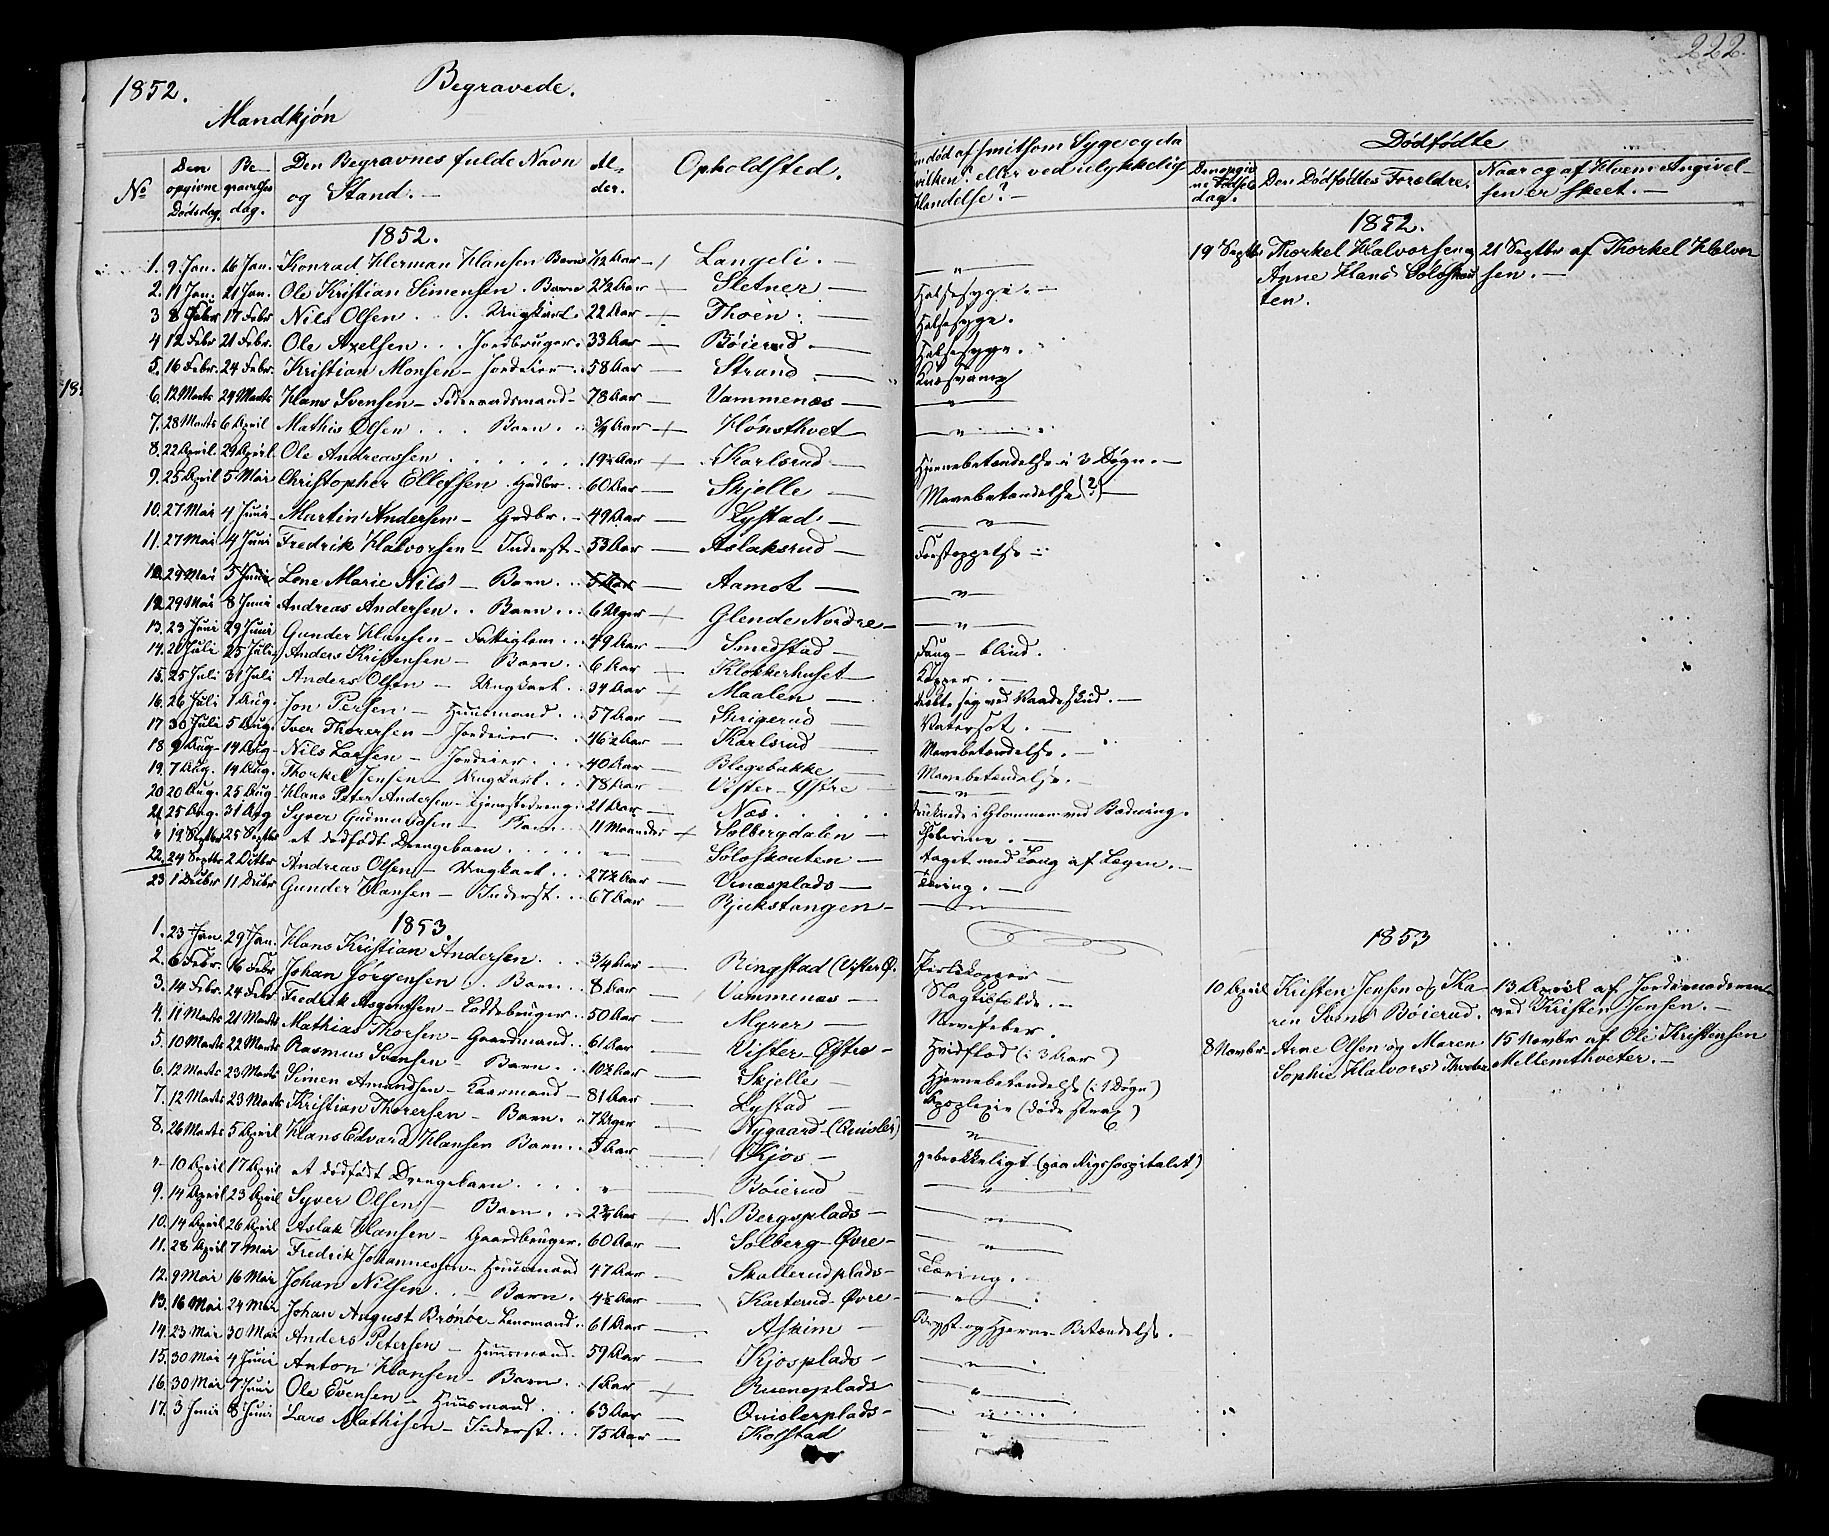 222.
1852. Begravede.
Mandkjøn
No Den opgivne Dødsdag. Begravelsesdag. Den Begravnes fulde Navn og Stand. Alder. Opholdsted. død af smitsom Syge og da hvilken? eller ved ulykkelig Hændelse? Dødfødte
Den opgivne Fødselsdag. Den Dødfødtes Forældre. Naar og af Hvem Angivelsen er skeet.
1852. 1852.
1. 9 Jan. 16 Jan. Konrad Herman Hansen Barn 1/2 Aar Langeli. "
2. 11 Jan. 21 Jan. Ole Kristian Simensen. Barn 2 1/2 Aar Sletner Halsesyge.
3 8 Febr 17 Febr Nils Olsen Ungkarl. 22 Aar Thoen. Halsesyge.
4 12 Febr 21 Febr. Ole Axelsen Jordbruger. 33 Aar Bøierud Halsesyge.
5. 16 Febr. 24 Febr. Kristian Monsen Jordeier 58 Aar Strand
6. 12 Marts 24 Marts Hans Svensen Føderaadsmand 78 Aar Vammenæs "
7. 28 Marts 6 April Mathis Olsen Barn 3/4 Aar Hønsthvet "
8. 22 April 29 April. Ole Andreassen 19 1/2 Aar Karlsrud Hjernebetændelse i 3 Døgn.
9. 25 April 5 Mai Christopher Ellefsen Gdbr. 60 Aar Skjølle Mavebetændelse (?)
10. 27 Mai 4 Juni Martin Andersen Grdbr. 49 Aar Lystad "
11. 27 Mai 4 Juni Fredrik Halvorsen Inderst 53 Aar Aslaksrud Forstoppelse
12 29 Mai 5 Juni Lene Marie Nilsd Barn 5 Aar Aamot "
12 29 Mai 8 Juni Andreas Andersen Barn 6 Uger Glende Nordre "
13. 23 Juni 29 Juni Gunder Hansen Fattiglem 49 Aar Smedstad blind.
14. 20 Juli 25 Juli Anders Kristensen Barn 6 Aar Klokkerhuset Kopper.
15. 25 Juli 31 Juli Anders Olsen Ungkarl 34 Aar Maalen sig ved Vaadeskud.
16. 26 Juli 1 Aug. Jon Persen Huusmand 57 Aar Skrigerud Vatersot.
17 30 Juli 5 Aug. Iver Thorersen Jordeier 46 1/2 Aar Karlsrud Mavebetændelse.
18 9 Aug 14 Aug Nils Larsen Jordeier 40 Aar Blegebakke Mavebetændelse.
19. 7 Aug. 14 Aug. Thorkel Jensen Ungkarl 78 Aar Vister-Østre "
20 20 Aug. 25 Aug Hans Peter Andersen Tjenestedreng 21 Aar Næs druknede i Glommen ved Badning.
21. 25 Aug. 31 Aug Syver Gudmundsen Barn 11 Maaneder Solbergdalen Cholerine.
" 19 Septbr 25 Septbr et dødfødt Drengebarn " Soløskouten taget med Tang af Lægen.
22. 24 Septbr 2 Octbr Andreas Olsen Ungkarl 27 1/2 Aar Vinæsplads Tæring.
23 1 Decbr 11 Decbr Gunder Hansen Inderst 67 Aar Rjukstangen
19 Septbr Thorkel Halvorsen og Anne Hansd Soløskouten. 21 Septbr af Thorkel Halvorsen.
1853. 1853
1. 23 Jan. 29 Jan. Hans Kristian Andersen 3/4 Aar Ringstad (Vister Ø.
2. 6 Febr. 16 Febr Johan Jørgensen Barn 8 Aar Vammenæs Slagtilfælde.
3. 14 Febr. 24 Febr. Fredrik Asgentsen Løddebruger 50 Aar Myrer Nervefeber.
4. 11 Marts 21 Marts Mathias Thorsen Gaardmand 61 Aar Vister-Østre Hvidflod (i 3 Aar)
5. 10 Marts 22 Marts Rasmus Svensen Barn 10 1/2 Aar Skjølle Hjernebetændelse (i 1 Døgn)
6. 12 Marts 23 Marts Simen Amundsen Kaarmand 81 Aar Lystad Apoplexie (døde strax)
7. 12 Marts 23 Marts Kristian Thorersen Barn 7 Uger Nygaard (Qvisler) "
8. 26 Marts 5 April Hans Edvard Hansen Barn 5 Aar Kjos gebrækkeligt (paa Rigshospitalet)
" 10 April 17 April et dødfødt Drengebarn " Bøierud "
9. 14 April 23 April Syver Olsen Barn 2 3/4 Aar N. Bergsplads "
10. 14 April 26 April Aslak Hansen Gaardbruger 60 Aar Solberg-Øvre "
11. 28 April 7 Mai Fredrik Johannessen Huusmand 47 Aar Skallerudplads Tæring.
12. 9 Mai 16 Mai Johan Nilsen Barn 4 1/2 Aar Karterud-Øvre "
13. 16 Mai 24 Mai Johan August Brønøe Lensmand 61 Aar Askim Bryst og Hjerne-Betændelse.
14. 23 Mai 30 Mai Anders Petersen Huusmand 59 Aar Kjosplads "
15. 30 Mai 4 Juni Anton Hansen Barn 1 Aar Rueneplads "
16. 30 Mai 7 Juni Ole Evensen Huusmand 63 Aar Qvislerplads "
17. 3 Juni 8 Juni Lars Mathisen Inderst 75 Aar Kolstad "
10 April Kristen Jensen og Karen Svensd Bøierud. 13 April af Jordemoderen ved Kristen Jensen.
8 Novbr Arne Olsen og Maren Sophie Halvorsd Thveter 15 Novbr af Ole Kristensen Mellemthveter.